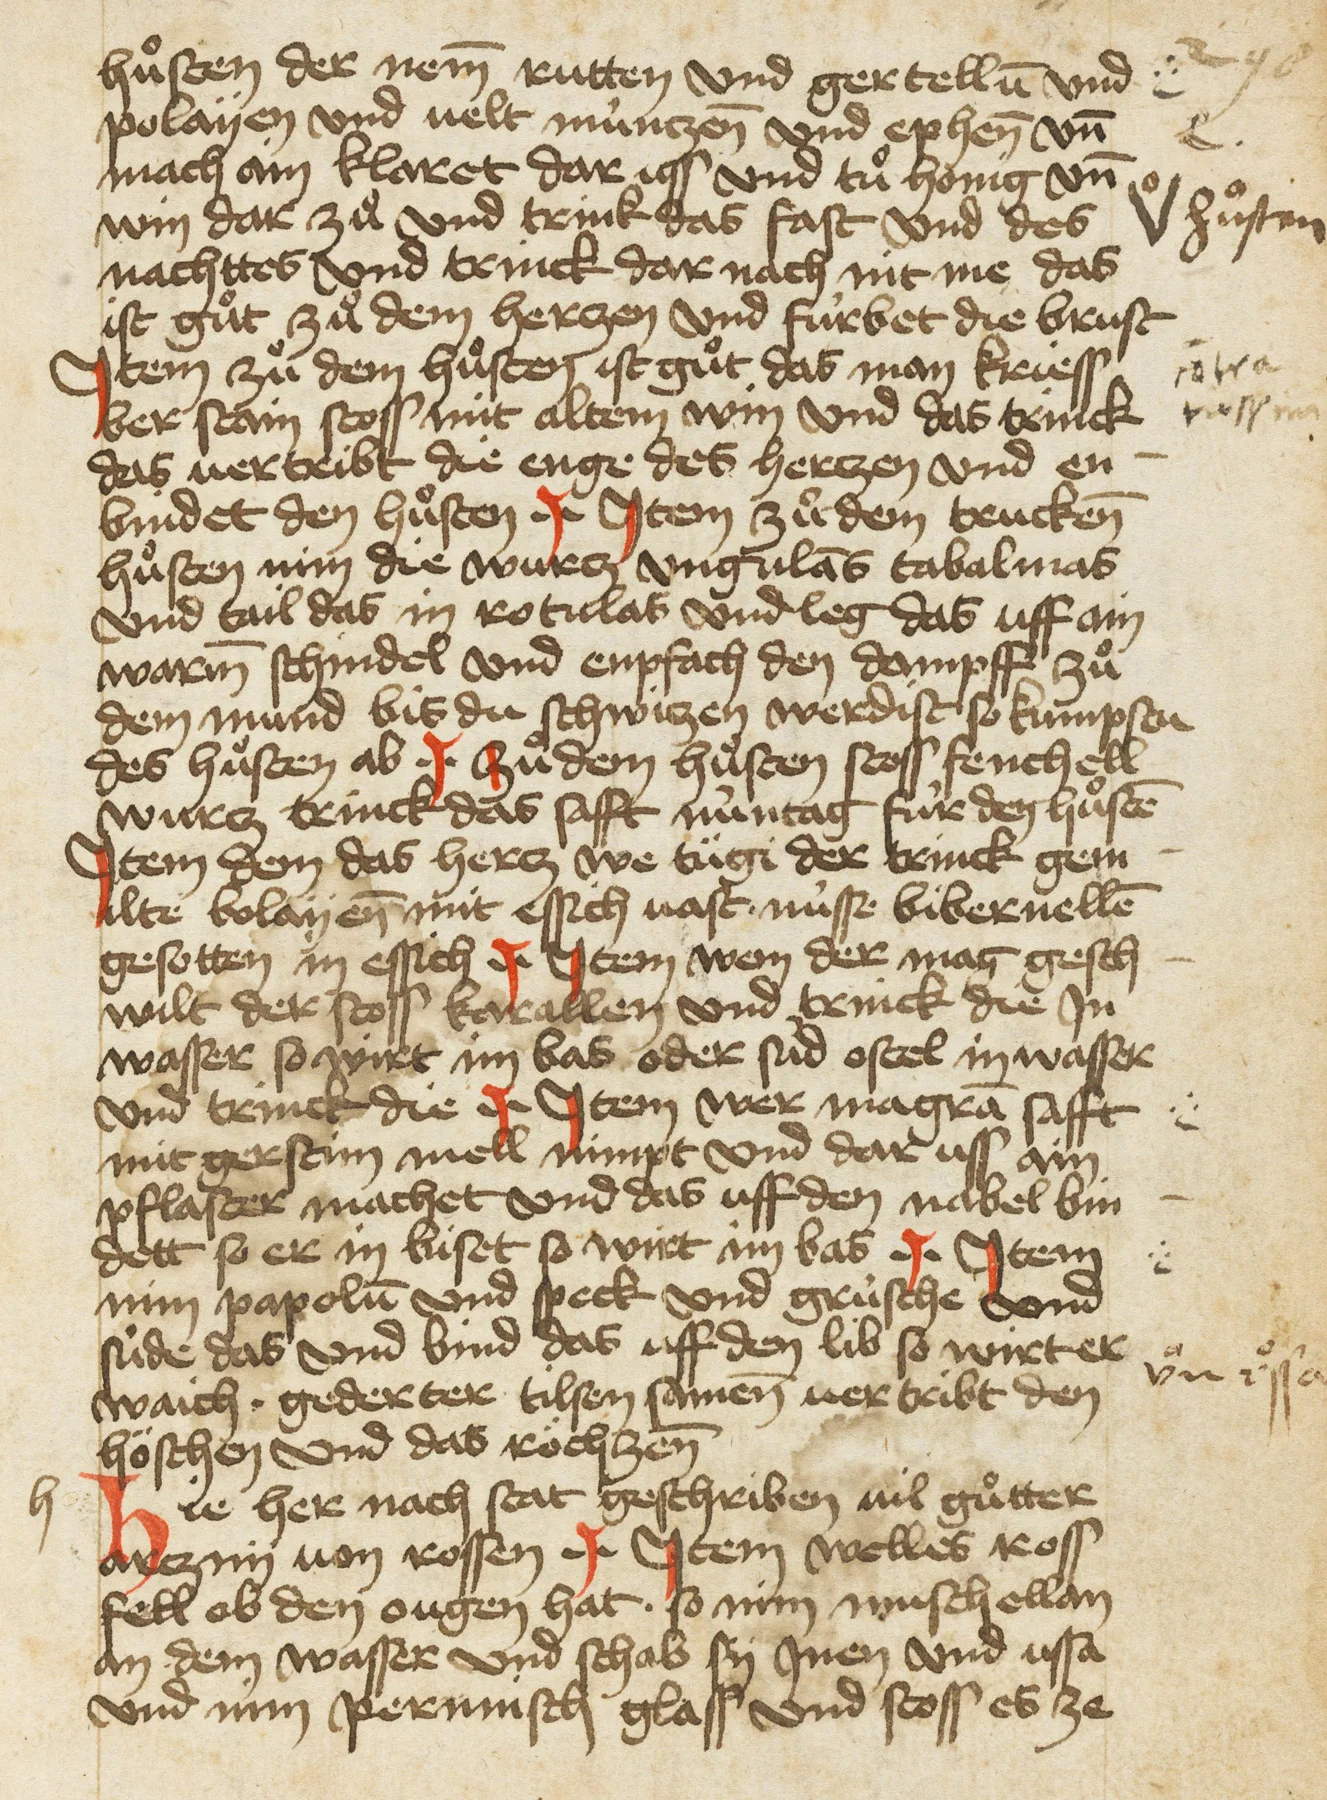 hůsten der nem̄ rutten vnd gertellū vnd
polaÿen vnd uelt műnczen̄ vnd ephen̄ vn̄
mach ain klaret dar uss vnd tů honig vn̄
win dar zů vnd trink das fast vnd des
nachttes vnd trinck dar nach nit me das
ist gůt zů dem herczen vnd fűrbet die brust
Item zů dem hůsten ist gůt das man kriess
ber stain stoss mit altem win vnd das trinck
das uertribt die enge des herczen vnd en
bindet den hůsten Item zů dem trucken̄
hůsten nim die wurcz vngulās cabalinas
vnd tail das in rotulas vnd leg das uff ain
warm̄ schindel vnd enpfach den dampff zů
dem mund bis du schwiczen werdist so kumpstu
des hůsten ab zů dem hůsten stoss fenchell
wurcz trinck das safft nűntag fűr den hůstē
Item dem das hercz we tűgi der trinck gem
ilte bolaÿen̄ mit essich uast. nűsse bibernellē
gesotten in essich Item wem der mag gesch
wilt der stoss korallen vnd trinck die In
wasser so wirt im bas oder sűd ostel in wasser
vnd trinck die Item wer magrā safft
mit gerstim mell nimpt vnd dar uss ain
pflaster machet vnd das uff den nabel bin
dett so er in biset so wirt im bas Item
nim papolū vnd speck vnd grűsche vnd
sűde das vnd bind das uff den lib so wirt er
waich. gederter tilsen samen̄ uertribt den
höschen vnd das röchzen̄
h
Hie her nach stat geschriben uil gůtter
arcznij uon rossen Item welles ross
fell ob den ougen hat. so nim muschellan
an dem wasser vnd schab sy Inen vnd ussa
vnd nim permisch glass vnd stoss es ze
hůsten